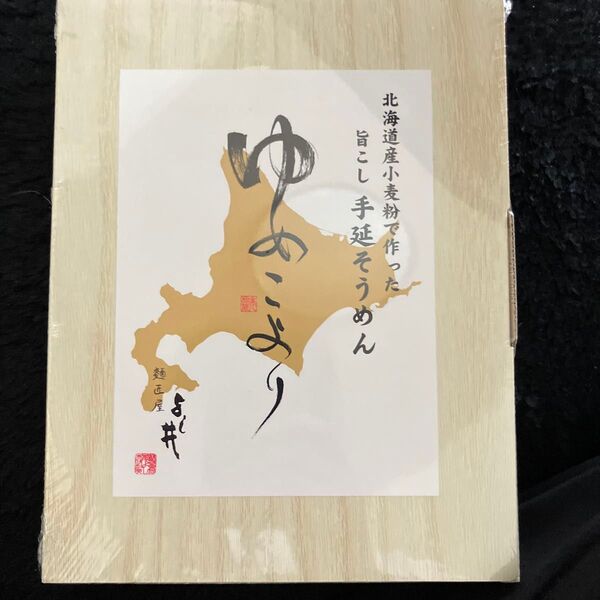 北海道産小麦粉で作った
旨こし 手延そうめん
ゆめこより
麺匠屋
よし井